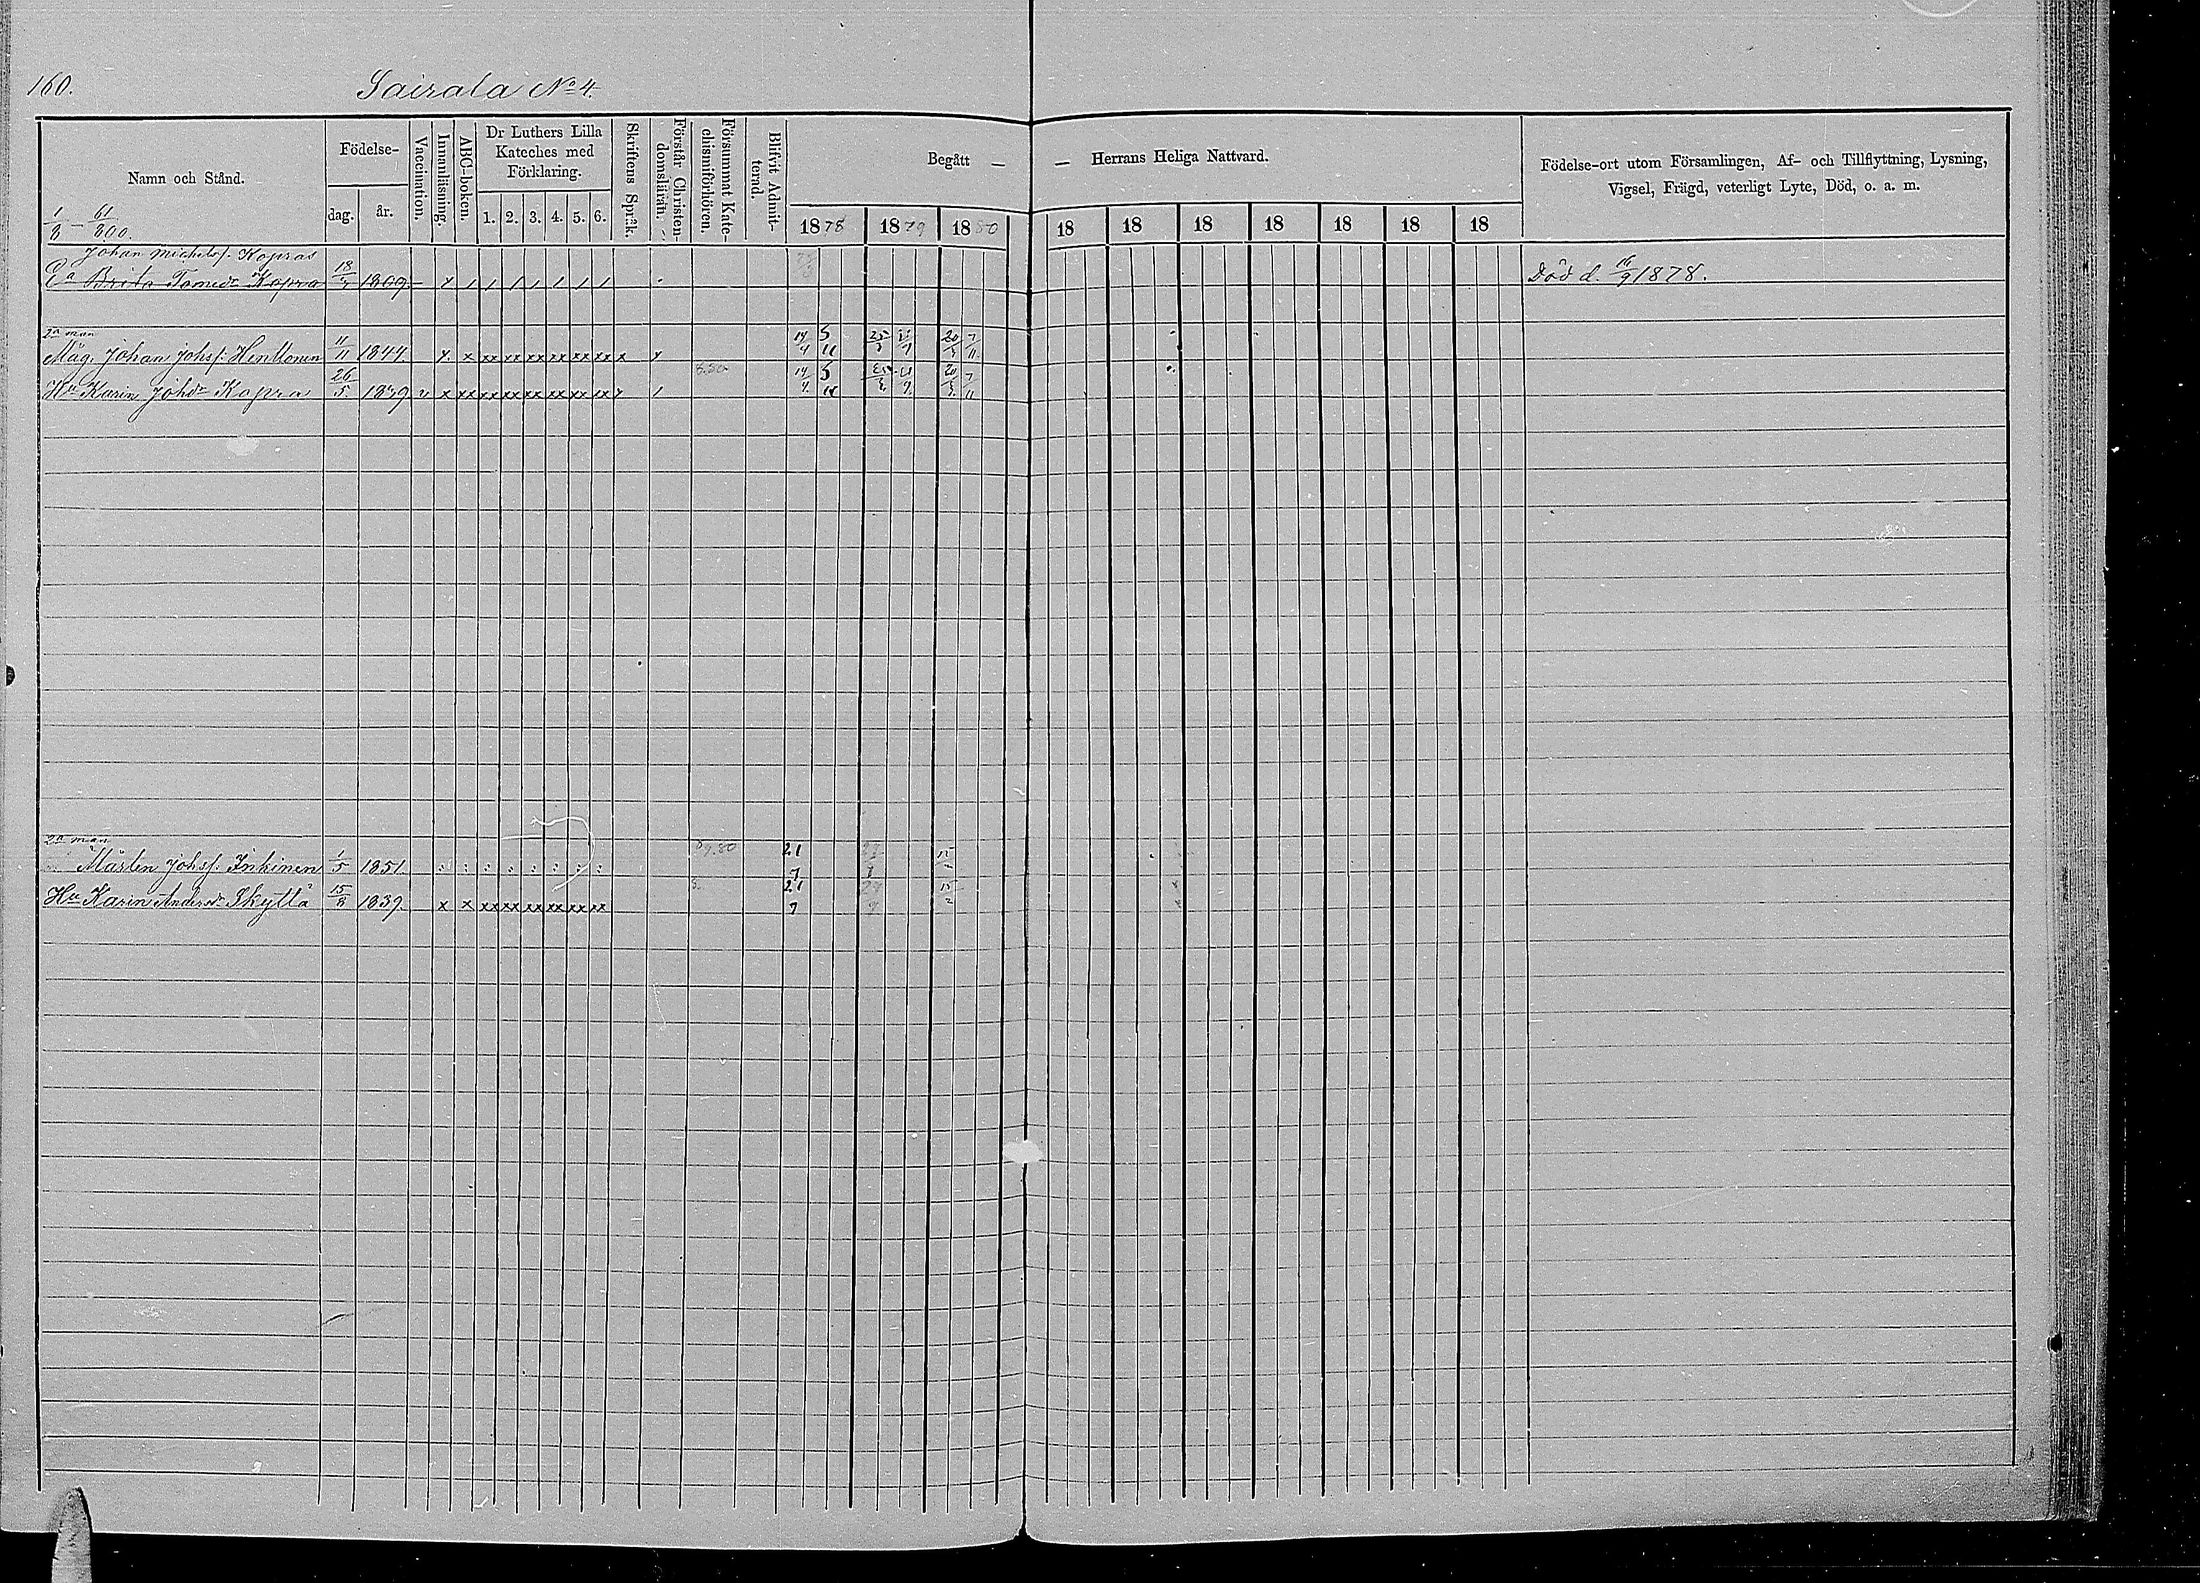 160.
Sairala No 4.
Namn och Stånd.
Födelse-
dag.
år.
Vaccination.
Innanläsning.
ABC-boken.
Dr Luthers Lilla
Kateches med
Förklaring.
1. 2. 3. 4. 5. 6.
Skriftens Språk.
Förstår Christen-
domslärän.
Försummat Kate-
chismiförhören.
Blifvit Admit-
ternd.
Begått —
— Herrans Heliga Nattvard.
1878 1879 1880 18 18 18 18 18 18 18
Födelse-ort utom Församlingen, Af- och Tillflyttning, Lysning,
Vigsel, Frägd, veterligt Lyte, Död, o. a. m.
1/8 – 61/800.
Johan Michelsf. Kopras
Ea Brita Tomedr Kopra 18 1809 Död d. 16/9 1878.
2a man
Måg. Johan Johsf. Henttonen 11/11 1844. x. x xx xx xx xx xx xx x x 14/4 5/11 20 7/11
Hu Karin Johdr Kopra 26/5 1849 14/4 5/11 20 7/11
2a man
Mårten Johsf. Inkinen 1/5 1851. 21/7 15
Hu Karin Andersdr Skyttä 15/8 1839. x x xx xx xx xx xx xx 21/7 15/2